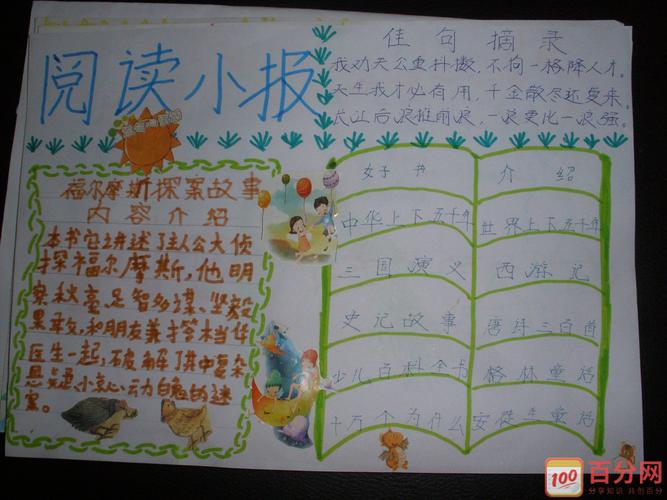 阅读小报
佳句摘录
我劝天公重抖擞,不拘一格降人才。
天生我才必有用,千金散尽还复来。
长江后浪推前浪,一浪更比一浪强。
福尔摩斯探案故事
内容介绍
本书它讲述了主人公大侦
探福尔摩斯,他明
察秋毫足智多谋、坚毅
果敢,和朋友兼搭档华
医生一起,破解了其中复杂
悬疑、惊心动魄的迷
案。
好书 介绍
中华上下五千年 世界上下五千年
三国演义 西游记
史记故事 唐诗三百首
少儿百科全书 格林童话
十万个为什么 安徒生童话
100 百分网
分享知识 共创百分